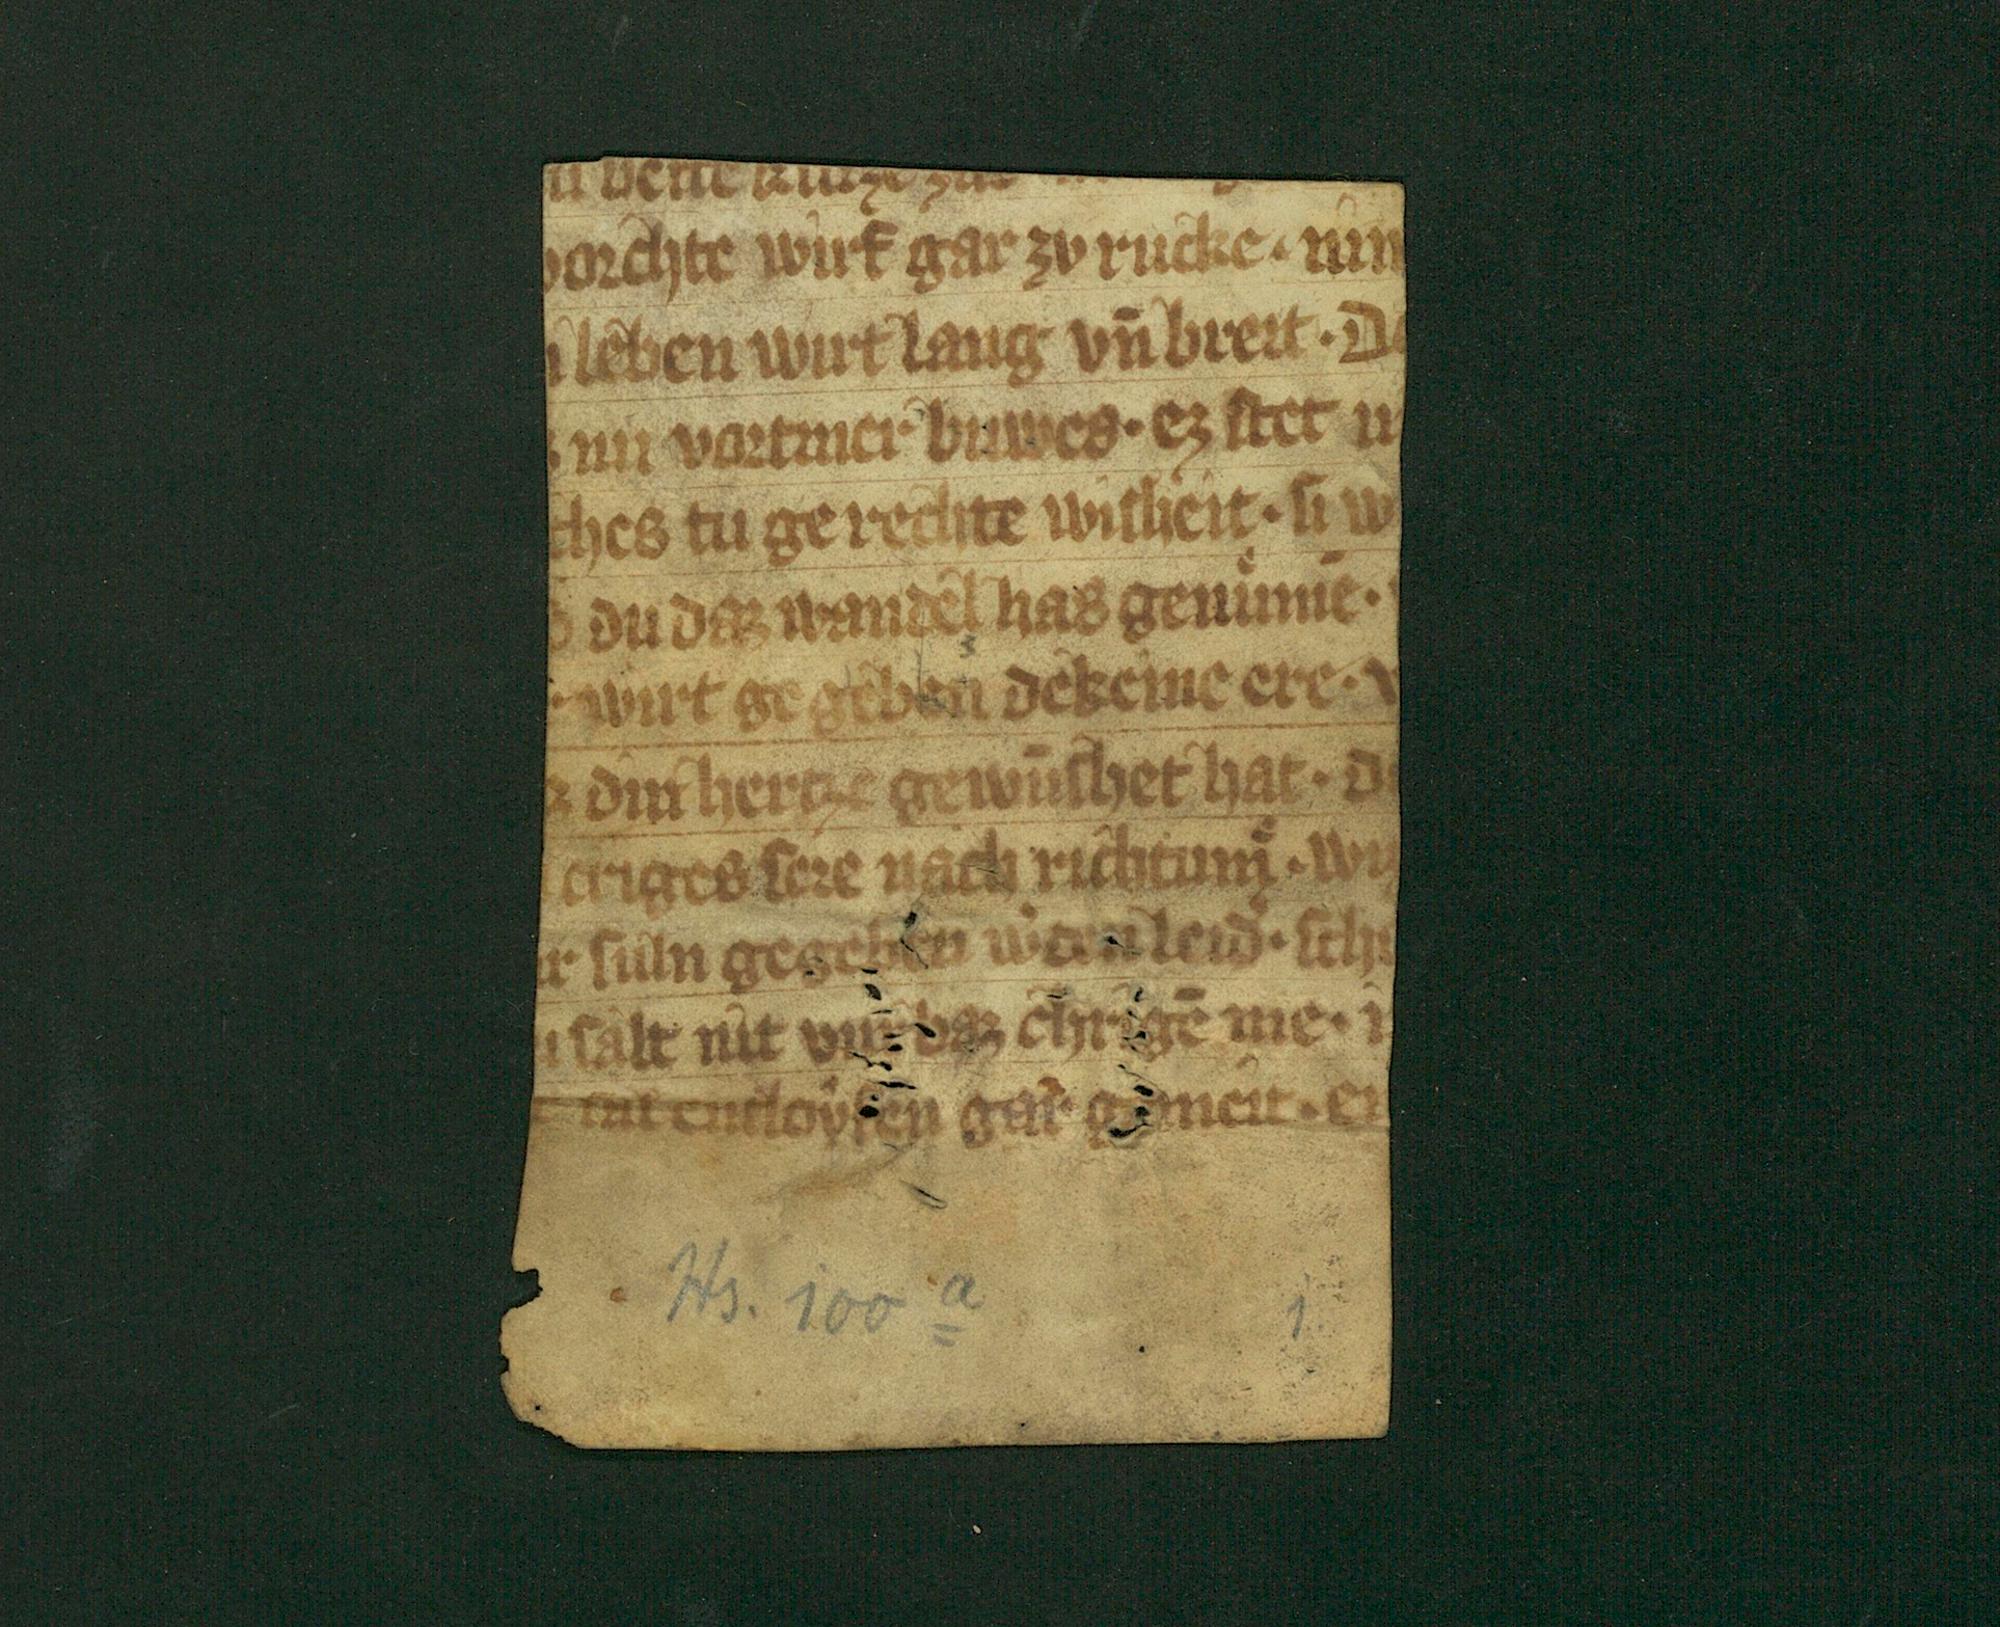 vorchte wirf gar zv rucke · nim
leben wirt lang vn̄ breit · De
nu vortmer buwes · ez stet
ches tu ge rechte wisheit · si w
du daz wandel has genůmē ·
wirt ge geben dekeine ere · v
din hertze gewūshet hat · d
criges sere nach richtum͛ · wi
r suln gegeben w͛den leid͛ · schs
salt nit vur baz chrigē me · i
sal entloysen gar gemeit · er
Hs. 100 a
1.